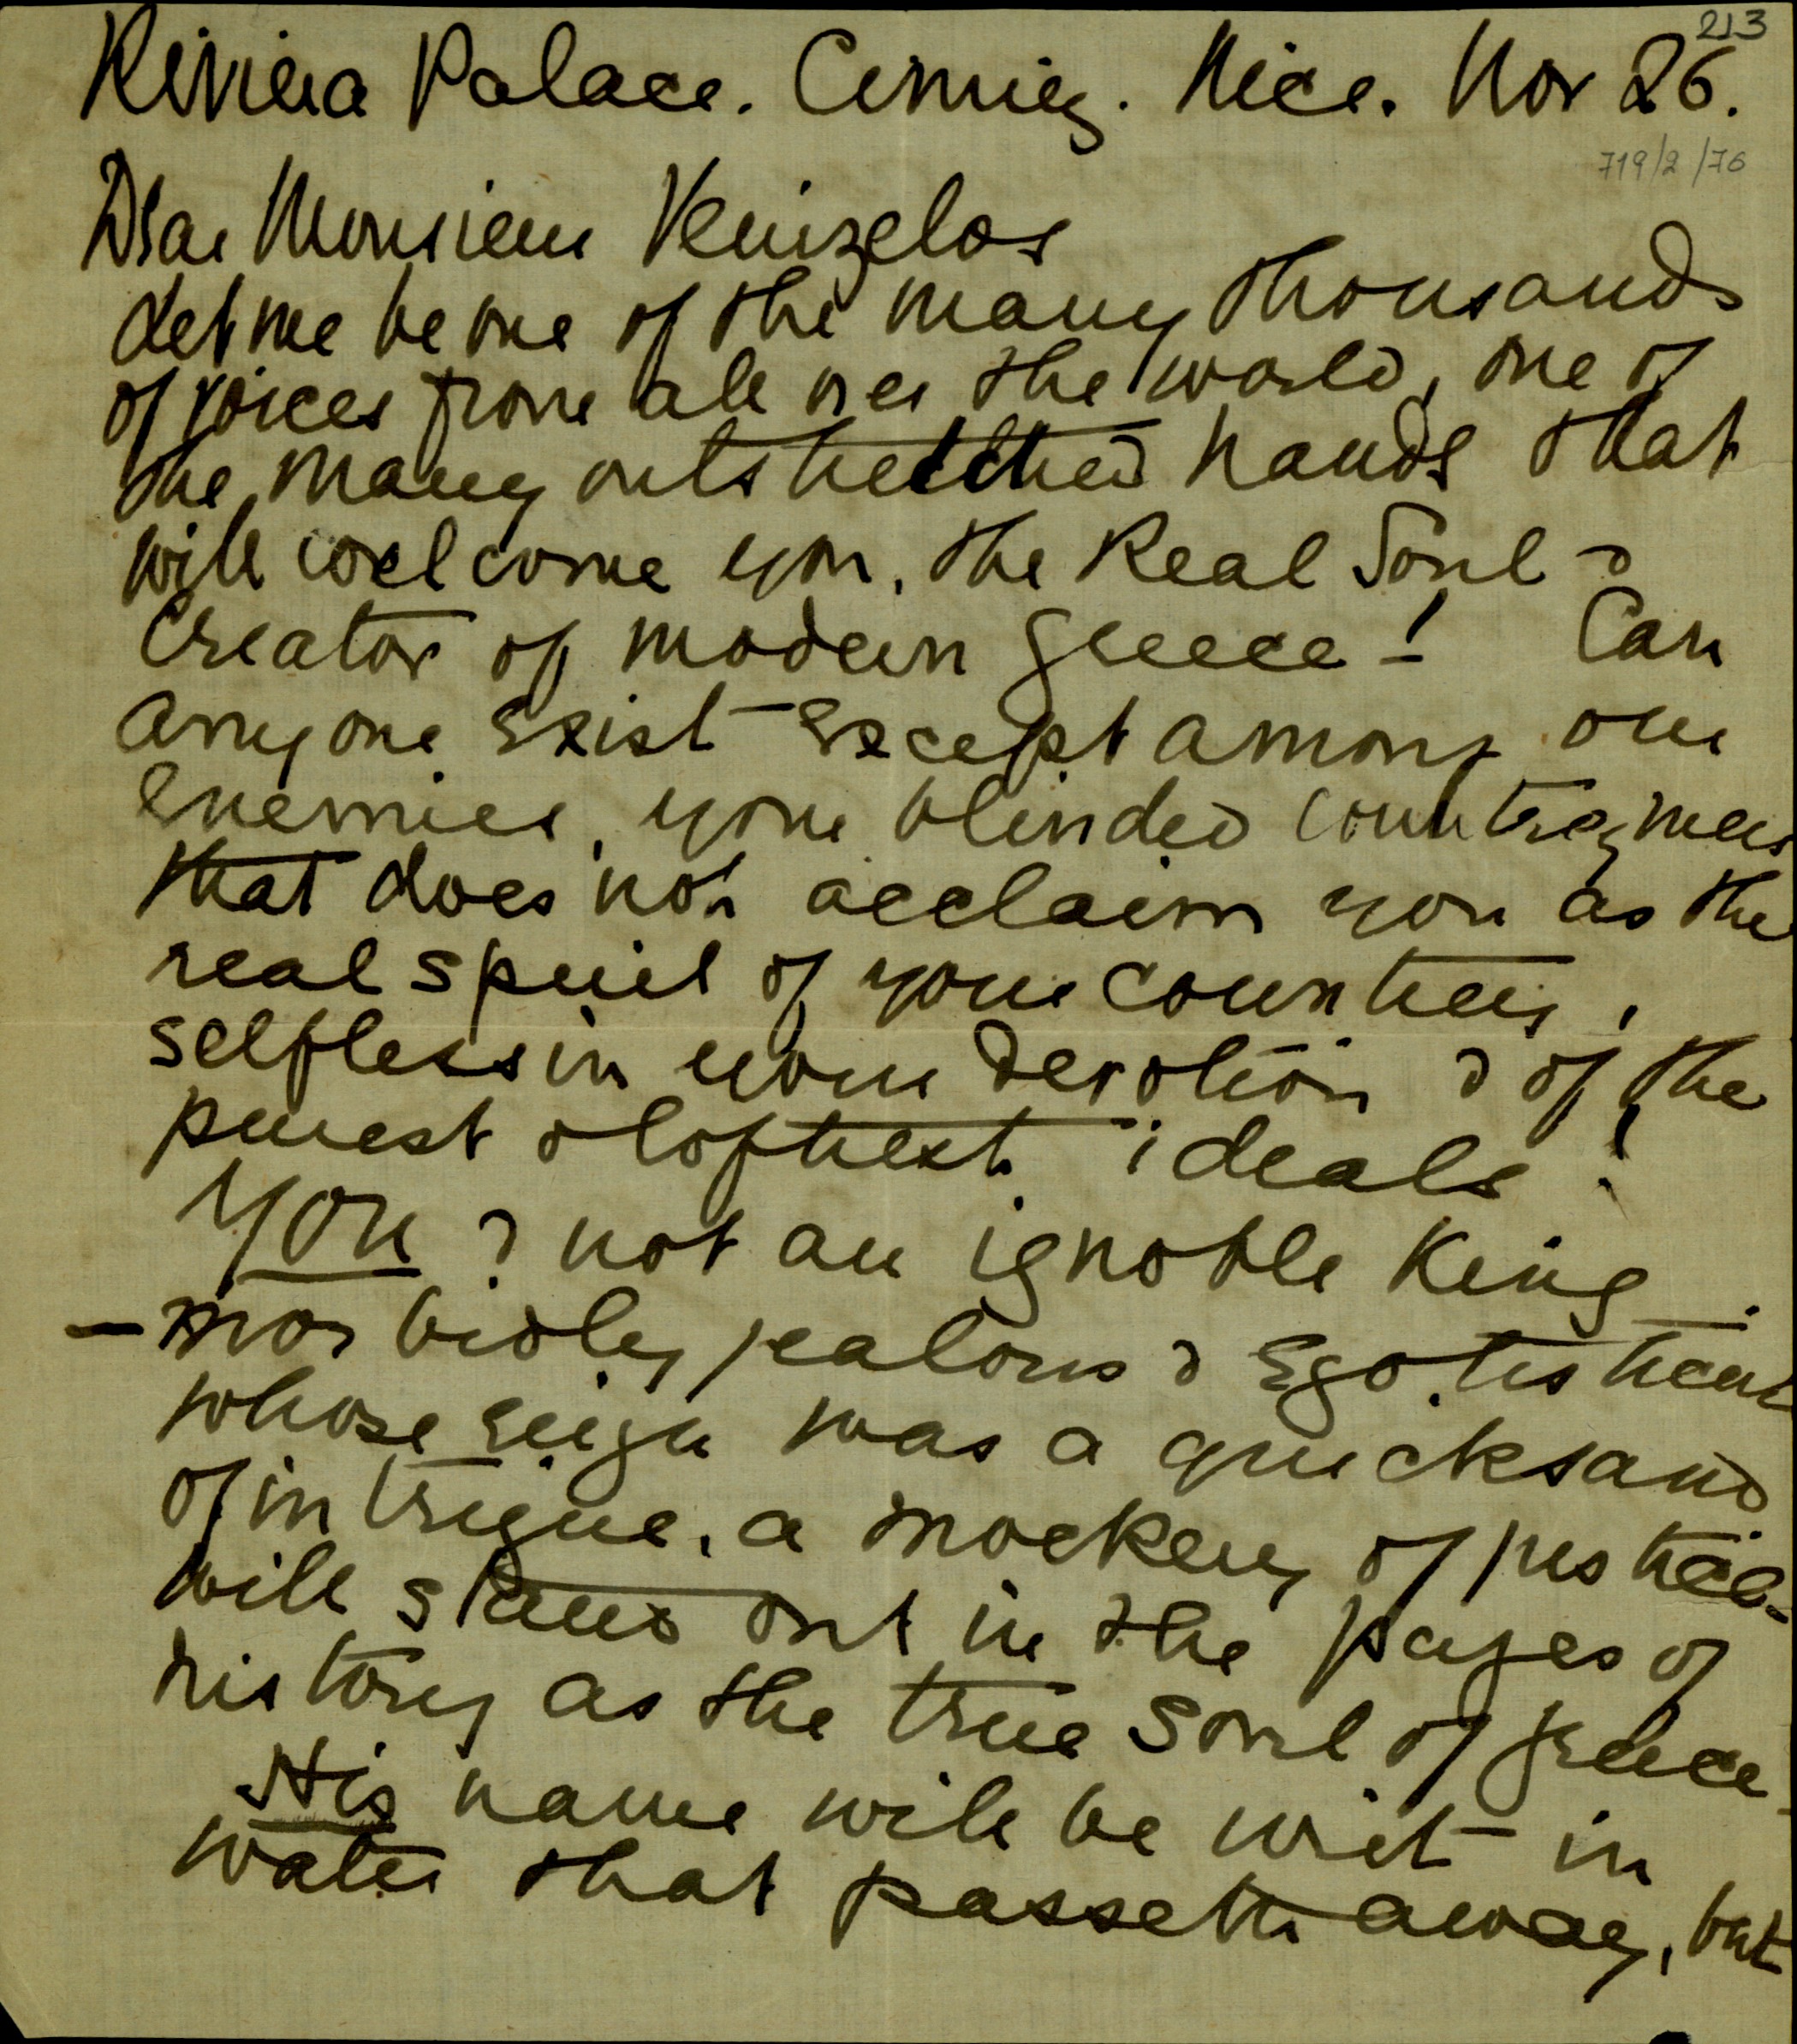 213
Riviera Palace. Cimiez. Nice. Nov 26.
719/2/76
Dear Monsieur Venizelos
Let me be one of the many thousands
of voices from all over the world, one of
the many outstretched hands that
will welcome you, the Real Soul &
Creator of modern Greece! Can
anyone exist except among our
enemies, your blinded countrymen
that does not acclaim you as the
real spirit of your country,
selfless in your devotion & of the
purest & loftiest ideals!
You & not an ignoble King
- morbidly jealous & egotistical
whose reign was a quicksand
of intrigue, a mockery of justice -
will stand out in the pages of
history as the true soul of Greece.
His name will be writ in
water that passeth away, but